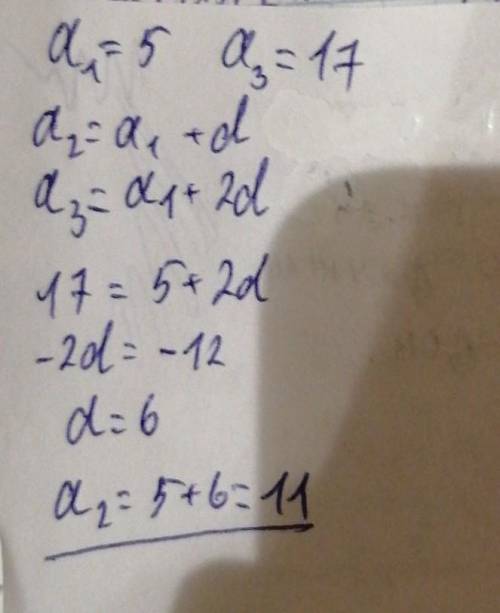 a₁ = 5 a₃ = 17
a₂ = a₁ + d
a₃ = a₁ + 2d
17 = 5 + 2d
-2d = -12
d = 6
a₂ = 5 + 6 = 11